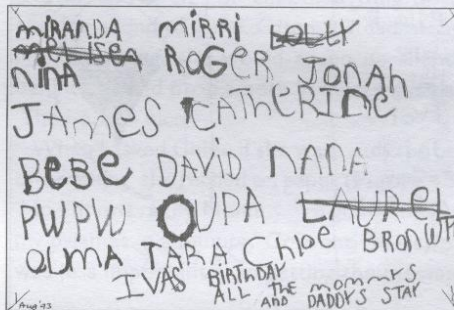 MIRANDA MIRRI LOLLY
MELISEA ROGER JONAH
NINA
JAMES CATHERINE
BEBE DAVID NANA
PWPW OUPA LAUREL
OUMA TARA Chloe BRONWP
IVAS BIRTHDAY
ALL THE MOMMYS
AND DADDYS STAY
Aug '93